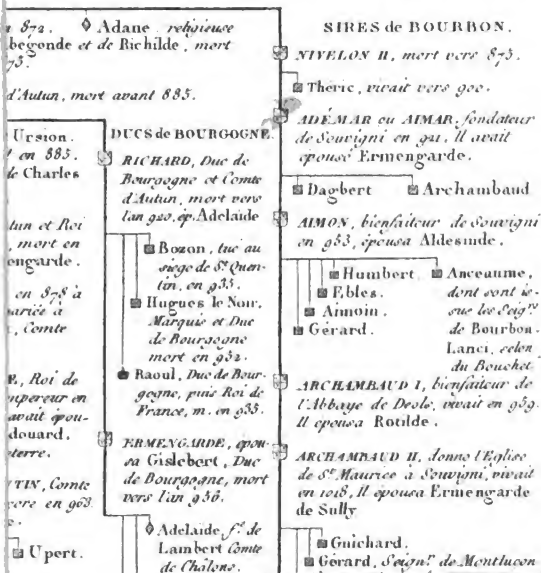 872. Adane religieuse
begonde et de Richilde, mort
d'Autun, mort avant 885.
Ursion.
en 885.
Charles
tun et Roi
, mort en
engarde.
en 878 à
, Comte
, Roi de
mpereur en
avait épou-
douard.
TIN, Comte
Upert.
DUCS de BOURGOGNE.
RICHARD, Duc de
Bourgogne et Comte
d'Autun, mort vers
l'an 920, ép. Adelaide
Bozon, tué au
siege de St. Quen-
tin, en 935.
Hugues le Noir,
Marquis et Duc
de Bourgogne
mort en 952.
Raoul, Duc de Bour-
gogne, puis Roi de
France, m. en 935.
ERMENGARDE, épou-
sa Gislebert, Duc
de Bourgogne, mort
vers l'an 956.
Adelaide, f.e de
Lambert Comte
de Châlons.
SIRES de BOURBON.
NIVELON II, mort vers 875.
Theric, vivait vers 900.
ADÉMAR ou AIMAR, fondateur
de Souvigni en 921, Il avait
épousé Ermengarde.
Dagbert Archambaud
AIMON, bienfaiteur de Souvigni
en 953, épousa Aldesinde.
Humbert
Ebles.
Aimoin.
Gérard.
Anceaume,
dont sont is-
sus les Seig.rs
de Bourbon-
Lanci, selon
du Bouchet
ARCHAMBAUD I, bienfaiteur de
l'Abbaye de Deols, vivait en 959.
Il épousa Rotilde.
ARCHAMBAUD II, donne l'Eglise
de St. Maurice à Souvigni, vivait
en 1018, Il épousa Ermengarde
de Sully
Guichard.
Gérard, Seign.r de Montlucon